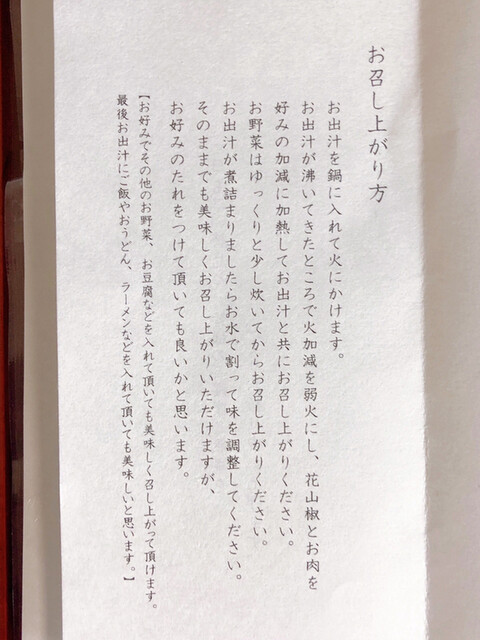 お召し上がり方
お出汁を鍋に入れて火にかけます。
お出汁が沸いてきたところで火加減を弱火にし、花山椒とお肉を
好みの加減に加熱してお出汁と共にお召し上がりください。
お野菜はゆっくりと少し炊いてからお召し上がりください。
お出汁が煮詰まりましたらお水で割って味を調整してください。
そのままでも美味しくお召し上がりいただけますが、
お好みのたれをつけて頂いても良いかと思います。
【お好みでその他のお野菜、お豆腐などを入れて頂いても美味しく召し上がって頂けます。
最後お出汁にご飯やおうどん、ラーメンなどを入れて頂いても美味しいと思います。】